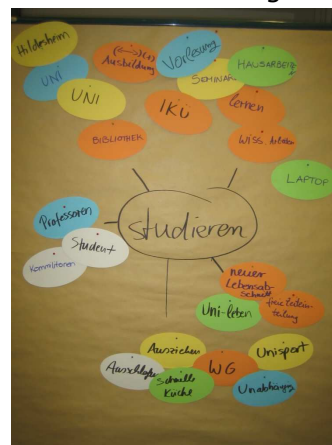 Hildesheim
UNI
UNI
Ausbildung
Vorlesung
SEMINAR
HAUSARBEIT
IKÜ
lernen
BIBLIOTHEK
Wiss Arbeiten
LAPTOP
Professoren
Student
Kommilitonen
studieren
neuer
Lebensab-
schnitt
freie Zeitein-
teilung
Uni-leben
Ausziehen
Ausschlafen
Schnelle
Küche
WG
Unisport
Unabhängig